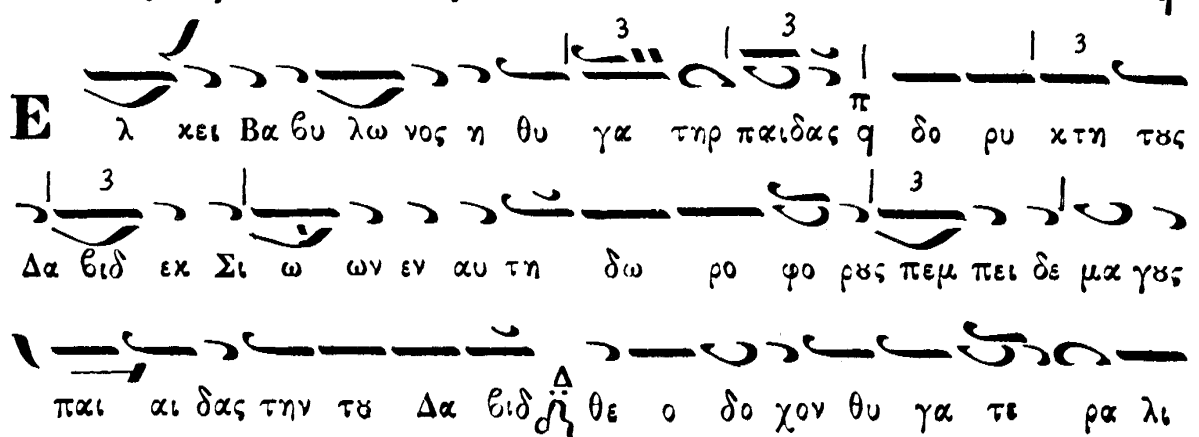 Ελ κει Βα ϐυ λω νος η θυ γα τηρ παιδας π q δο ρυ κτη τȣς
Δα ϐιδ εκ Σι ω ων εν αυ τη δω ρο φο ρȣς πεμ πει δε μα γȣς
παι αι δας την τȣ Δα ϐιδ Δ θε ο δο χον θυ γα τε ρα λι